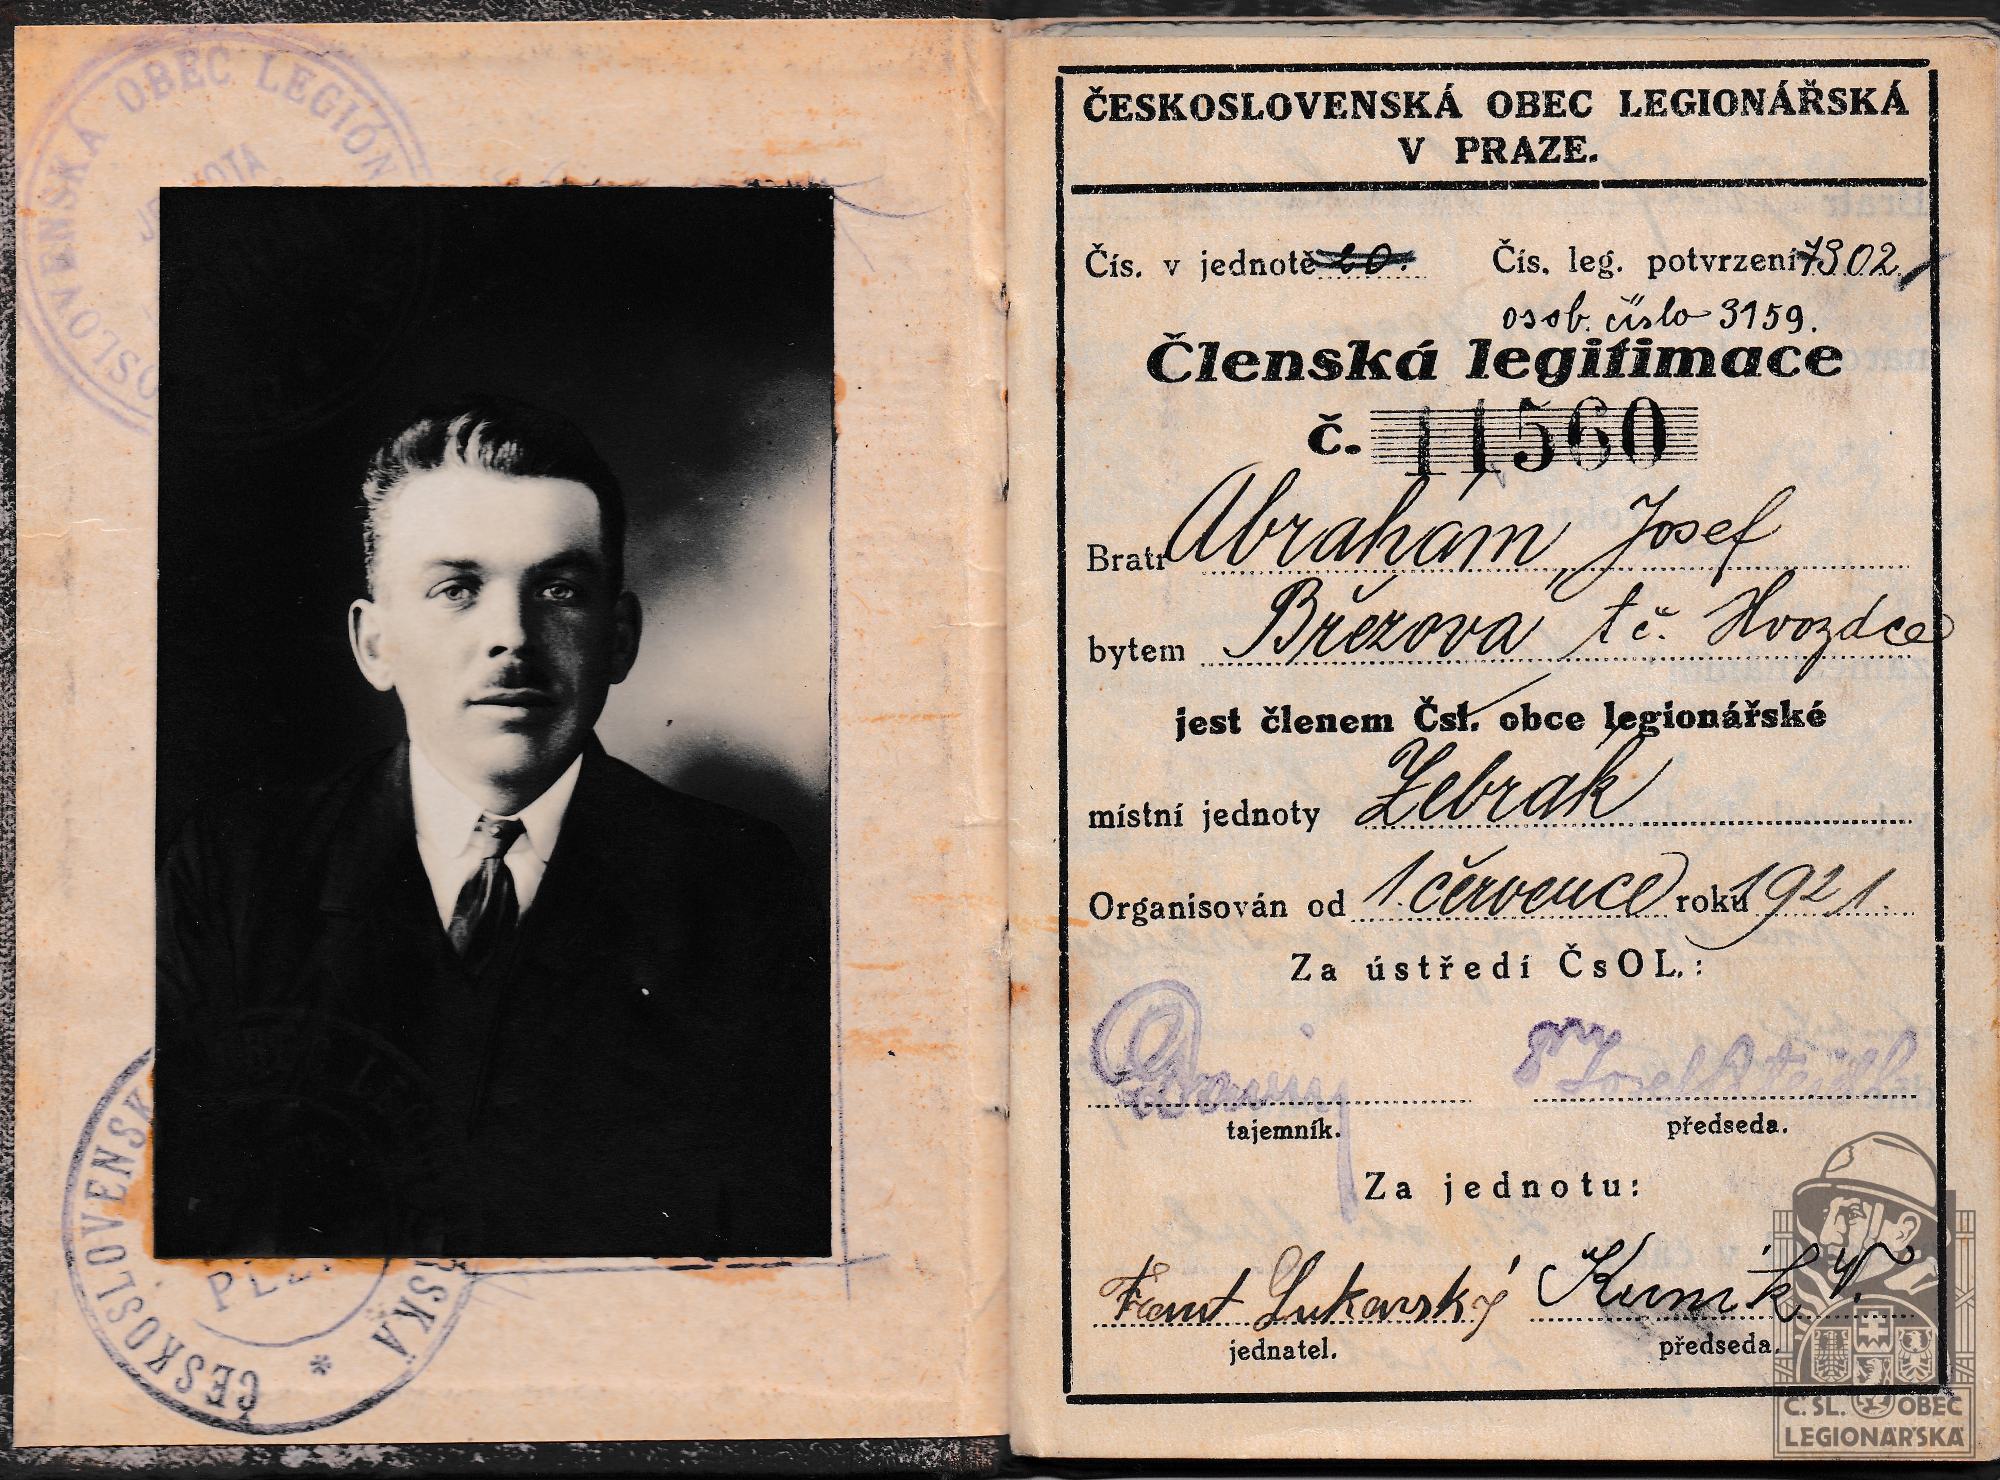 ČESKOSLOVENSKÁ OBEC LEGIONÁŘSKÁ
V PRAZE.
Čís. v jednotě 20. Čís. leg. potvrzení 7302
osob. číslo 3159.
Členská legitimace
č. 11560
Bratr Abrahám, Josef
bytem Březová, t č. Hvozdce
jest členem Čsl. obce legionářské
místní jednoty Žebrák
Organisován od 1. července roku 1921.
Za ústředí ČsOL.:
tajemník. předseda.
Za jednotu:
Frant Lukavský
jednatel. předseda.
ČESKOSLOVENSKÁ OBEC LEGION
JEDNOTA
ČESKOSLOVENSK RSKÁ
Č. SL. OBEC
LEGIONÁŘSKÁ